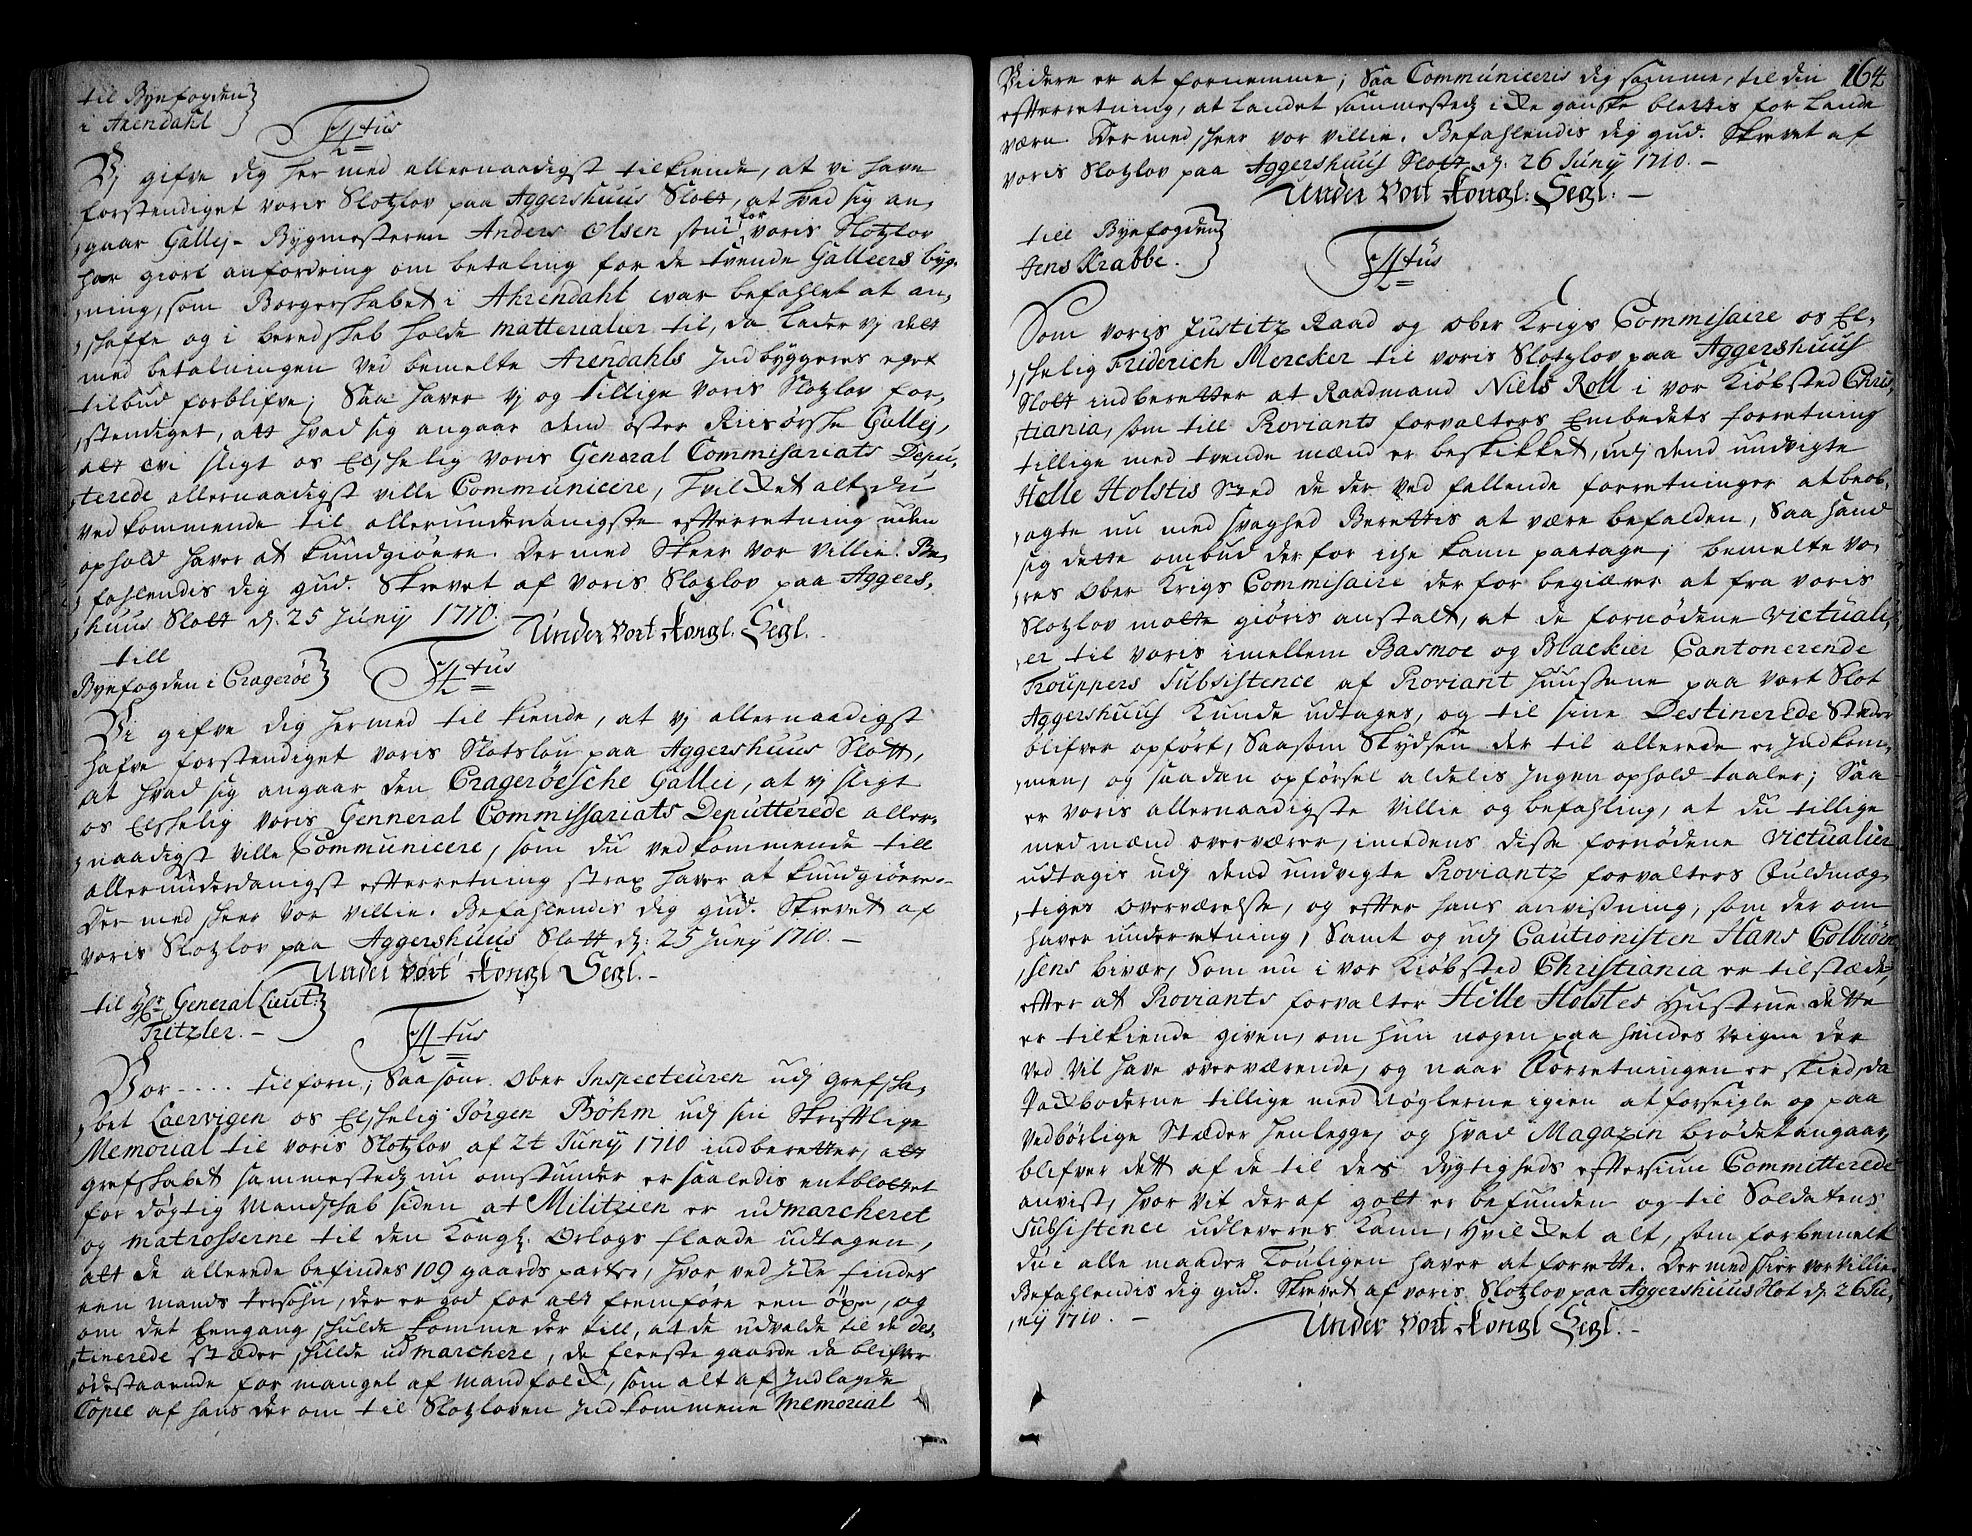 til Byefogden
i Arendahl
F 4 tus
Vj gifve dig her med allernaadigst tilkiende, at vi have
forstendiget voris Slotzlov paa Aggershuus Slott, at hvad sig an¬
gaar Gallej-Bygmesteren Anders Olsen som for voris Slotzlov
har giort anfordring om betaling for de tvende Galleers byg¬
ning, som Borgerskabet i Ahrendahl var befahlet at an¬
schaffe og i beredskab holde matterialier til, da lader vj det
med betalningen ved bemelte Arendahls Indbyggeres eget
tilbud forblifve; Saa haver vj og tillige voris Slotzlov for¬
stendiget, att hvad sig angaar dend øster Riisørske Gallej,
att vi sligt os Elschelig voris General Commisariats Depu¬
terede allernaadigst ville Communicere, hvilket alt du
vedkommende til allerunderdanigste efterretning uden
ophold haver at kundgiøere. Der med skeer vor villie. Be¬
fahlendis dig gud. Skrevet af voris Slotzlov paa Aggers¬
huus Slott d. 25 Junij 1710.
Under vort kongl. Segl.
till
Byefogden i Cragerøe
F 4 tus
Vi gifve dig hermed til kiende, at vj allernaadigst
hafve forstendiget voris Slotslou paa Aggershuus Slott,
at hvad sig angaar den Cragerøesche Gallei, at vj sligt
os Elskelig voris Genneral Commissariats Deputterede aller¬
naadigst ville Communicere, som du vedkommende till
allerunderdanigst efterretning strax haver at kundgiøere.
Der med skeer vor villie. Befahlendis dig gud. Skrevet af
voris Slotzlov paa Aggershuus Slott d: 25 Junij 1710.
Under vort kongl Segl.
til Hr General Lieut:
Tritzler.
F 4 tus
Vor .... tilforn, Saasom Ober Inspecteuren udj grefska¬
bet Laervigen os Elschelig Jørgen Bøhm udj sin Skrifftlige
Memorial til voris Slotzlov af 21 Junij 1710 indberetter, att
grefskabet sammestedz nu omstunder er saaledis entblottet
for døgtig Mandskab siden at Militzien er udmarcheret
og matrosserne til den Kongl. Orlogs flaade udtagen,
att de allerede befindes 109 gaards parter, hvor ved ike findes
een mands Persohn, der er god for att fremføre een øxe, og
om det Eengang skulde komme der till, at de udvalde til de des¬
tinerede stæder skulde udmarchere, de fleeste gaarde da blifver
ødestaaende for mangel af mandfolk, som alt af Indlagde
Copie af hans der om til Slotzloven Indkommene Memorial
164
Videre er at fornemme; Saa Communiceris dig samme, til din
efterretning, at landet sammestedz icke ganske blottis for lande
værn. Dermed skeer vor villie. Befahlendis dig gud. Skrevet af
voris Slotzlov paa Aggershuus Slott d. 26 Junij 1710.
Under vort kongl: Segl.
till Byefogden
Jens Krabbe.
F 4 tus
Som voris Justitz Raad og Ober Krigs Commisaire os El¬
skelig Friderich Mercker til voris Slotzlov paa Aggershuus
Slott indberetter at Raadmand Niels Roll i vor Kiøbsted Chris¬
tiania, som till Proviants forvalters Embedets forretning
tillige med tvende mænd er beskikket, udj dend undvigte
Helle Holstis sted de der ved fallende forretninger at beob¬
agte nu med svaghed Berettis at være befalden, Saa hand
sig dette ombud derfor iche kann paatage; bemelte vo¬
res Ober Krigs Commisaire derfor begiærer at fra voris
Slotzlov motte giøris anstalt, at de fornødene victuali¬
er til voris imellem Basmoe og Blackier Cantonerende
Trouppers Subsistence af Proviant huusene paa vort Slot
Aggershuus kunde udtages, og til sine Destinerede Stæder
blifver opført, Saasom Skydsen der til allerede er Indkom¬
men, og saadan opførsel aldelis Ingen ophold taaler; Saa
er voris allernaadigste villie og befahling, at du tillige
med mænd overværer, imedens disse fornødene victualier
udtagis udj dend undvigte Proviantz forvalters Fuldmæg¬
tiges Overværelse, og efter hans anvisning, som der om
haver underretning, Samt og udj Cautionisten Hans Colbiørn¬
sens bivær, Som nu i vor Kiøbsted Christiania er tilstæde,
efter at Proviants forvalter Helle Holstes Hustrue dette
er tilkiende given, om hun nogen paa hindes veigne der
ved vil have overværende, og naar Forretningen er skeed, da
Pakboderne tillige med Nøglerne igien at forseigle og paa
vedbørlige Stæder henlegge, og hvad Magazin brødet angaar,
blifver dett af de til des dygtigheds eftersiun Committerede
anvist, hvor vit deraf gott er befunden og til Soldatens
Subsistence udleveres kann, hvilket alt, som forbemelt
du i alle maader troligen haver at forrette. Der med skier vor villie.
Befahlendis dig gud. Skrevet af voris Slotzlov paa Aggershuus Slot d. 26 Ju¬
nij 1710.
Under vort kongl Segl.